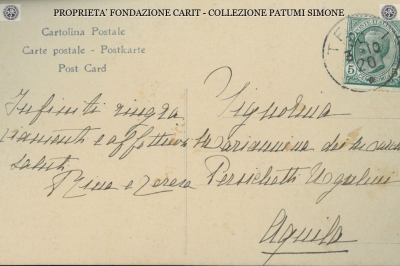 PROPRIETA' FONDAZIONE CARIT - COLLEZIONE PATUMI SIMONE
Cartolina Postale
Carte postale - Postkarte
Post Card
5
20
Infiniti ringra
ziamenti e affettuosi
saluti
Rina e Teresa
Signorina
Mariannina dei March
Persichetti Ugolini
Aquila